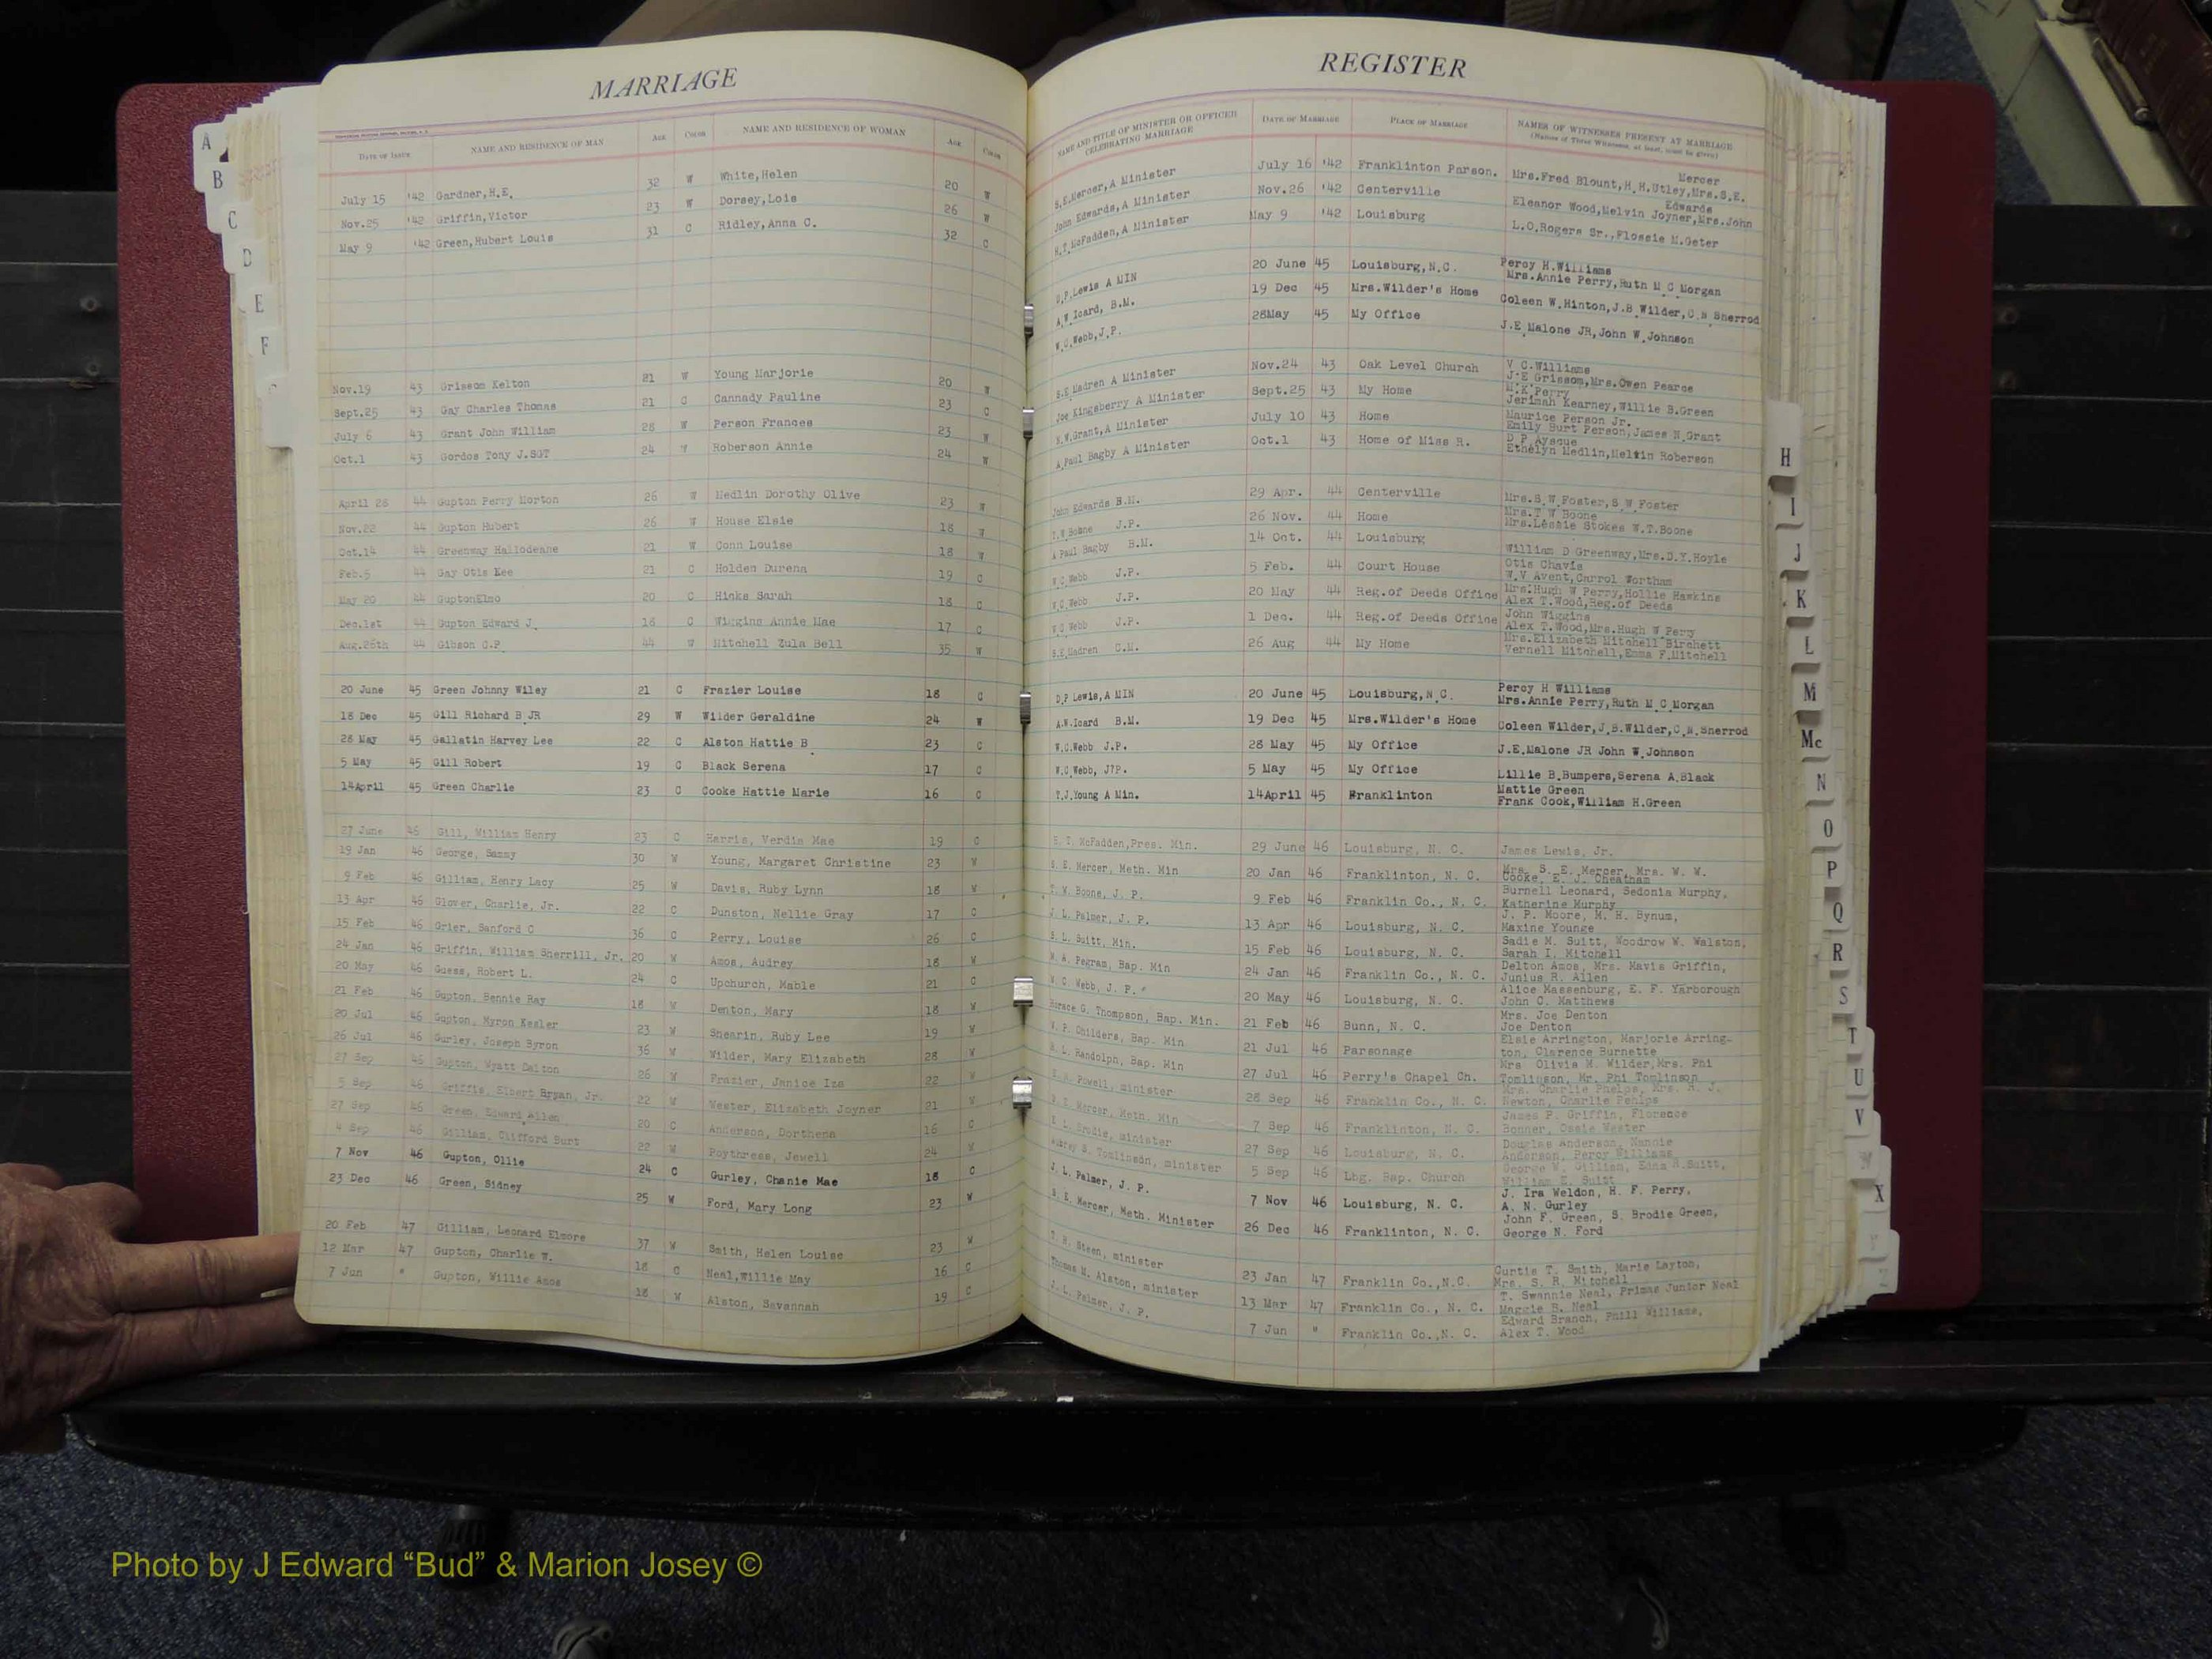 MARRIAGE
DATE OF ISSUE NAME AND RESIDENCE OF MAN AGE COLOR NAME AND RESIDENCE OF WOMAN AGE COLOR
July 15 '42 Gardner,H.E. 32 W White,Helen 20 W
Nov.25 '42 Griffin,Victor 23 W Dorsey,Lois 26 W
May 9 '42 Green,Hubert Louis 31 C Ridley,Anna C. 32 C
Nov.19 43 Grissom Kelton 21 W Young Marjorie 20 W
Sept.25 43 Gay Charles Thomas 21 C Cannady Pauline 23 C
July 6 43 Grant John William 28 W Person Frances 23 W
Oct.1 43 Gordos Tony J.SGT 24 W Roberson Annie 24 W
April 28 44 Gupton Perry Morton 26 W Medlin Dorothy Olive 23 W
Nov.22 44 Gupton Hubert 26 W House Elsie 18 W
Oct.14 44 Greenway Hallodeane 21 W Conn Louise 18 W
Feb.5 44 Gay Otis Lee 21 C Holden Durena 19 C
May 20 44 GuptonElmo 20 C Hinks Sarah 18 C
Dec.1st 44 Gupton Edward J. 18 C Wiggins Annie Mae 17 C
Aug.26th 44 Gibson C.P. 44 W Mitchell Zula Bell 35 W
20 June 45 Green Johnny Wiley 21 C Frazier Louise 18 C
18 Dec 45 Gill Richard B.JR 29 W Wilder Geraldine 24 W
28 May 45 Gallatin Harvey Lee 22 C Alston Hattie B. 23 C
5 May 45 Gill Robert 19 C Black Serena 17 C
14April 45 Green Charlie 23 C Cooke Hattie Marie 16 C
27 June 46 Gill, William Henry 23 C Harris, Verdis Mae 19 C
19 Jan 46 George, Sammy 30 W Young, Margaret Christine 23 W
9 Feb 46 Gilliam, Henry Lacy 25 W Davis, Ruby Lynn 18 W
13 Apr 46 Glover, Charlie, Jr. 22 C Dunston, Nellie Gray 17 C
15 Feb 46 Grier, Sanford C 36 C Perry, Louise 26 C
24 Jan 46 Griffin, William Sherrill, Jr. 20 W Amos, Audrey 18 W
20 May 46 Guess, Robert L. 24 C Upchurch, Mable 21 C
21 Feb 46 Gupton, Bennie Ray 18 W Denton, Mary 18 W
20 Jul 46 Gupton, Myron Kesler 23 W Shearin, Ruby Lee 19 W
26 Jul 46 Gurley, Joseph Byron 36 W Wilder, Mary Elizabeth 28 W
27 Sep 46 Gupton, Wyatt Dalton 26 W Frazier, Janice Iza 22 W
5 Sep 46 Griffin, Elbert Bryan, Jr. 22 W Wester, Elizabeth Joyner 21 W
27 Sep 46 Green, Edward Allen 20 C Anderson, Dorthena 16 C
4 Sep 46 Gilliam, Clifford Burt 22 W Poythress, Jewell 24 W
7 Nov 46 Gupton, Ollie 24 C Gurley, Chanie Mae 18 C
23 Dec 46 Green, Sidney 25 W Ford, Mary Long 23 W
20 Feb 47 Gilliam, Leonard Elmore 37 W Smith, Helen Louise 23 W
12 Mar 47 Gupton, Charlie W. 18 C Neal,Willie May 16 C
7 Jun " Gupton, Willie Amos 18 W Alston, Savannah 19 C
REGISTER
NAME AND TITLE OF MINISTER OR OFFICER CELEBRATING MARRIAGE DATE OF MARRIAGE PLACE OF MARRIAGE NAMES OF WITNESSES PRESENT AT MARRIAGE
(Names of Three Witnesses, at least, must be given)
Mercer
S.E.Mercer,A Minister July 16 '42 Franklinton Parson. Mrs.Fred Blount,H.H.Utley,Mrs.S.E.
Edwards
John Edwards,A Minister Nov.26 '42 Centerville Eleanor Wood,Melvin Joyner,Mrs.John
H.T.McFadden,A Minister May 9 '42 Louisburg L.O.Rogers Sr.,Flossie M.Geter
Percy H.Williams
D.P.Lewis A MIN 20 June 45 Louisburg,N.C. Mrs.Annie Perry,Ruth M C Morgan
A.W.Icard, B.M. 19 Dec 45 Mrs.Wilder's Home Coleen W.Hinton,J.B.Wilder,C.N.Sherrod
W.C.Webb,J.P. 28May 45 My Office J.E.Malone JR,John W.Johnson
V C.Williams
S.E.Madren A Minister Nov.24 43 Oak Level Church J.E Grissom,Mrs.Owen Pearce
M.K.Perry
Joe Kingsberry A Minister Sept.25 43 My Home Jerimah Kearney,Willie B.Green
Maurice Person Jr.
N.W.Grant,A Minister July 10 43 Home Emily Burt Person,James N.Grant
D P.Ayscue
A.Paul Bagby A Minister Oct.1 43 Home of Miss R. Ethelyn Medlin,Meltin Roberson
John Edwards B.M. 29 Apr. 44 Centerville Mrs.S.W.Foster,S W.Foster
Mrs.T W Boone
T.W Boone J.P. 26 Nov. 44 Home Mrs.Leslie Stokes W.T.Boone
A Paul Bagby B.M. 14 Oct. 44 Louisburg William D Greenway,Mrs.D.Y.Hoyle
Otis Chavis
W.C Webb J.P. 5 Feb. 44 Court House W.V Avent,Carrol Wortham
W.C Webb J.P. 20 May 44 Reg.of Deeds Office Mrs.Hugh W Perry,Hollie Hawkins
Alex T.Wood,Reg.of Deeds
John Wiggins
W.C Webb J.P. 1 Dec. 44 Reg.of Deeds Office Alex T.Wood,Mrs.Hugh W Perry
Mrs.Elizabeth Mitchell Birchett
S.E.Madren C.M. 26 Aug 44 My Home Vernell Mitchell,Emma F.Mitchell
Percy H Williams
D.P Lewis,A MIN 20 June 45 Louisburg,N.C. Mrs.Annie Perry,Ruth M C Morgan
A.W.Icard B.M. 19 Dec 45 Mrs.Wilder's Home Coleen Wilder,J.B.Wilder,C.N.Sherrod
W.C.Webb J.P. 28 May 45 My Office J.E.Malone JR John W.Johnson
W.C.Webb, J?P. 5 May 45 My Office Lillie B.Bumpers,Serena A.Black
Mattie Green
T.J.Young A Min. 14April 45 Franklinton Frank Cook,William H.Green
H. T. McFadden,Pres. Min. 29 June 46 Louisburg, N. C. James Lewis, Jr.
S. E. Mercer, Meth. Min 20 Jan 46 Franklinton, N. C. Mrs. S. E. Mercer, Mrs. W. W.
Cooke, E. J. Cheatham
T. W. Boone, J. P. 9 Feb 46 Franklin Co., N. C. Burnell Leonard, Sedonia Murphy,
Katherine Murphy
J. L. Palmer, J. P. 13 Apr 46 Louisburg, N. C. J. P. Moore, M. H. Bynum,
Maxine Younge
S. L. Suitt, Min. 15 Feb 46 Louisburg, N. C. Sadie M. Suitt, Woodrow W. Walston,
Sarah I. Mitchell
W. A. Pegram, Bap. Min 24 Jan 46 Franklin Co., N. C. Delton Amos, Mrs. Mavis Griffin,
Junius R. Allen
W. C. Webb, J. P. 20 May 46 Louisburg, N. C. Alice Massenburg, E. F. Yarborough
John C. Matthews
Horace G. Thompson, Bap. Min. 21 Feb 46 Bunn, N. C. Mrs. Joe Denton
Joe Denton
W. P. Childers, Bap. Min 21 Jul 46 Parsonage Elsie Arrington, Marjorie Arring-
ton, Clarence Burnette
R. L. Randolph, Bap. Min 27 Jul 46 Perry's Chapel Ch. Mrs Olivia M. Wilder,Mrs. Phi
Tomlinson, Mr. Phi Tomlinson
Powell, minister 28 Sep 46 Franklin Co., N. C. Mrs. Charlie Phelps, Mrs. R. J.
Newton, Charlie Pehlps
S. E. Mercer, Meth. Min 7 Sep 46 Franklinton, N. C. James P. Griffin, Florence
Bonner, Ossie Wester
Brodie, minister 27 Sep 46 Louisburg, N. C. Douglas Anderson, Nannie
Anderson, Percy Williams
Aubrey S. Tomlinson, minister 5 Sep 46 Lbg. Bap. Church George W. Gilliam, Edna R.Suitt,
William E. Suitt
J. L. Palmer, J. P. 7 Nov 46 Louisburg, N. C. J. Ira Weldon, H. F. Perry,
A. N. Gurley
S. E. Mercer, Meth. Minister 26 Dec 46 Franklinton, N. C. John F. Green, S. Brodie Green,
George N. Ford
T. R. Steen, minister 23 Jan 47 Franklin Co.,N.C. Curtis T. Smith, Marie Layton,
Mrs. S. R. Mitchell
Thomas M. Alston, minister 13 Mar 47 Franklin Co., N. C. T. Swannie Neal, Primas Junior Neal
Maggie B. Neal
J. L. Palmer, J. P. 7 Jun " Franklin Co.,N. C. Edward Branch, Phill Williams,
Alex T. Wood
A
B
C
D
E
F
H
I
J
K
L
M
Mc
N
O
P
Q
R
S
T
U
V
W
X
Y
Z
Photo by J Edward “Bud” & Marion Josey ©